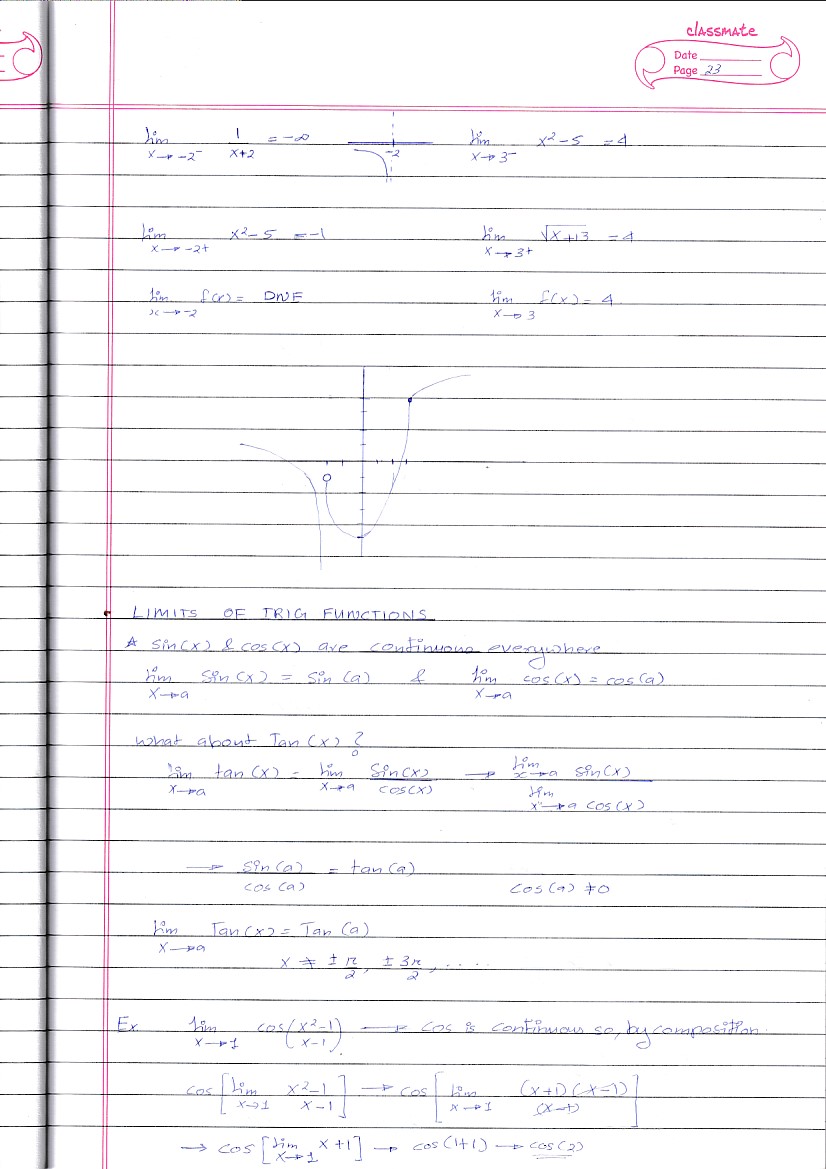 classmate
Date
Page 23
lim x→-2⁻ 1/(x+2) = -∞
-2
lim x→3⁻ x²-5 = 4
lim x→-2+ x²-5 = -1
lim x→3+ √(x+13) = 4
lim x→-2 f(x) = DNE
lim x→3 f(x) = 4
LIMITS OF TRIG FUNCTIONS
* sin(x) & cos(x) are continuous everywhere
lim x→a sin(x) = sin(a) & lim x→a cos(x) = cos(a)
What about Tan(x)?
lim x→a tan(x) = lim x→a sin(x)/cos(x) → lim x→a sin(x) / lim x→a cos(x)
→ sin(a)/cos(a) = tan(a) cos(a) ≠ 0
lim x→a Tan(x) = Tan(a)
x ≠ ± π/2, ± 3π/2, ....
Ex lim x→1 cos((x²-1)/(x-1)) → cos is continuous so, by composition
cos[lim x→1 (x²-1)/(x-1)] → cos[lim x→1 (x+1)(x-1)/(x-1)]
→ cos[lim x→1 x+1] → cos(1+1) → cos(2)